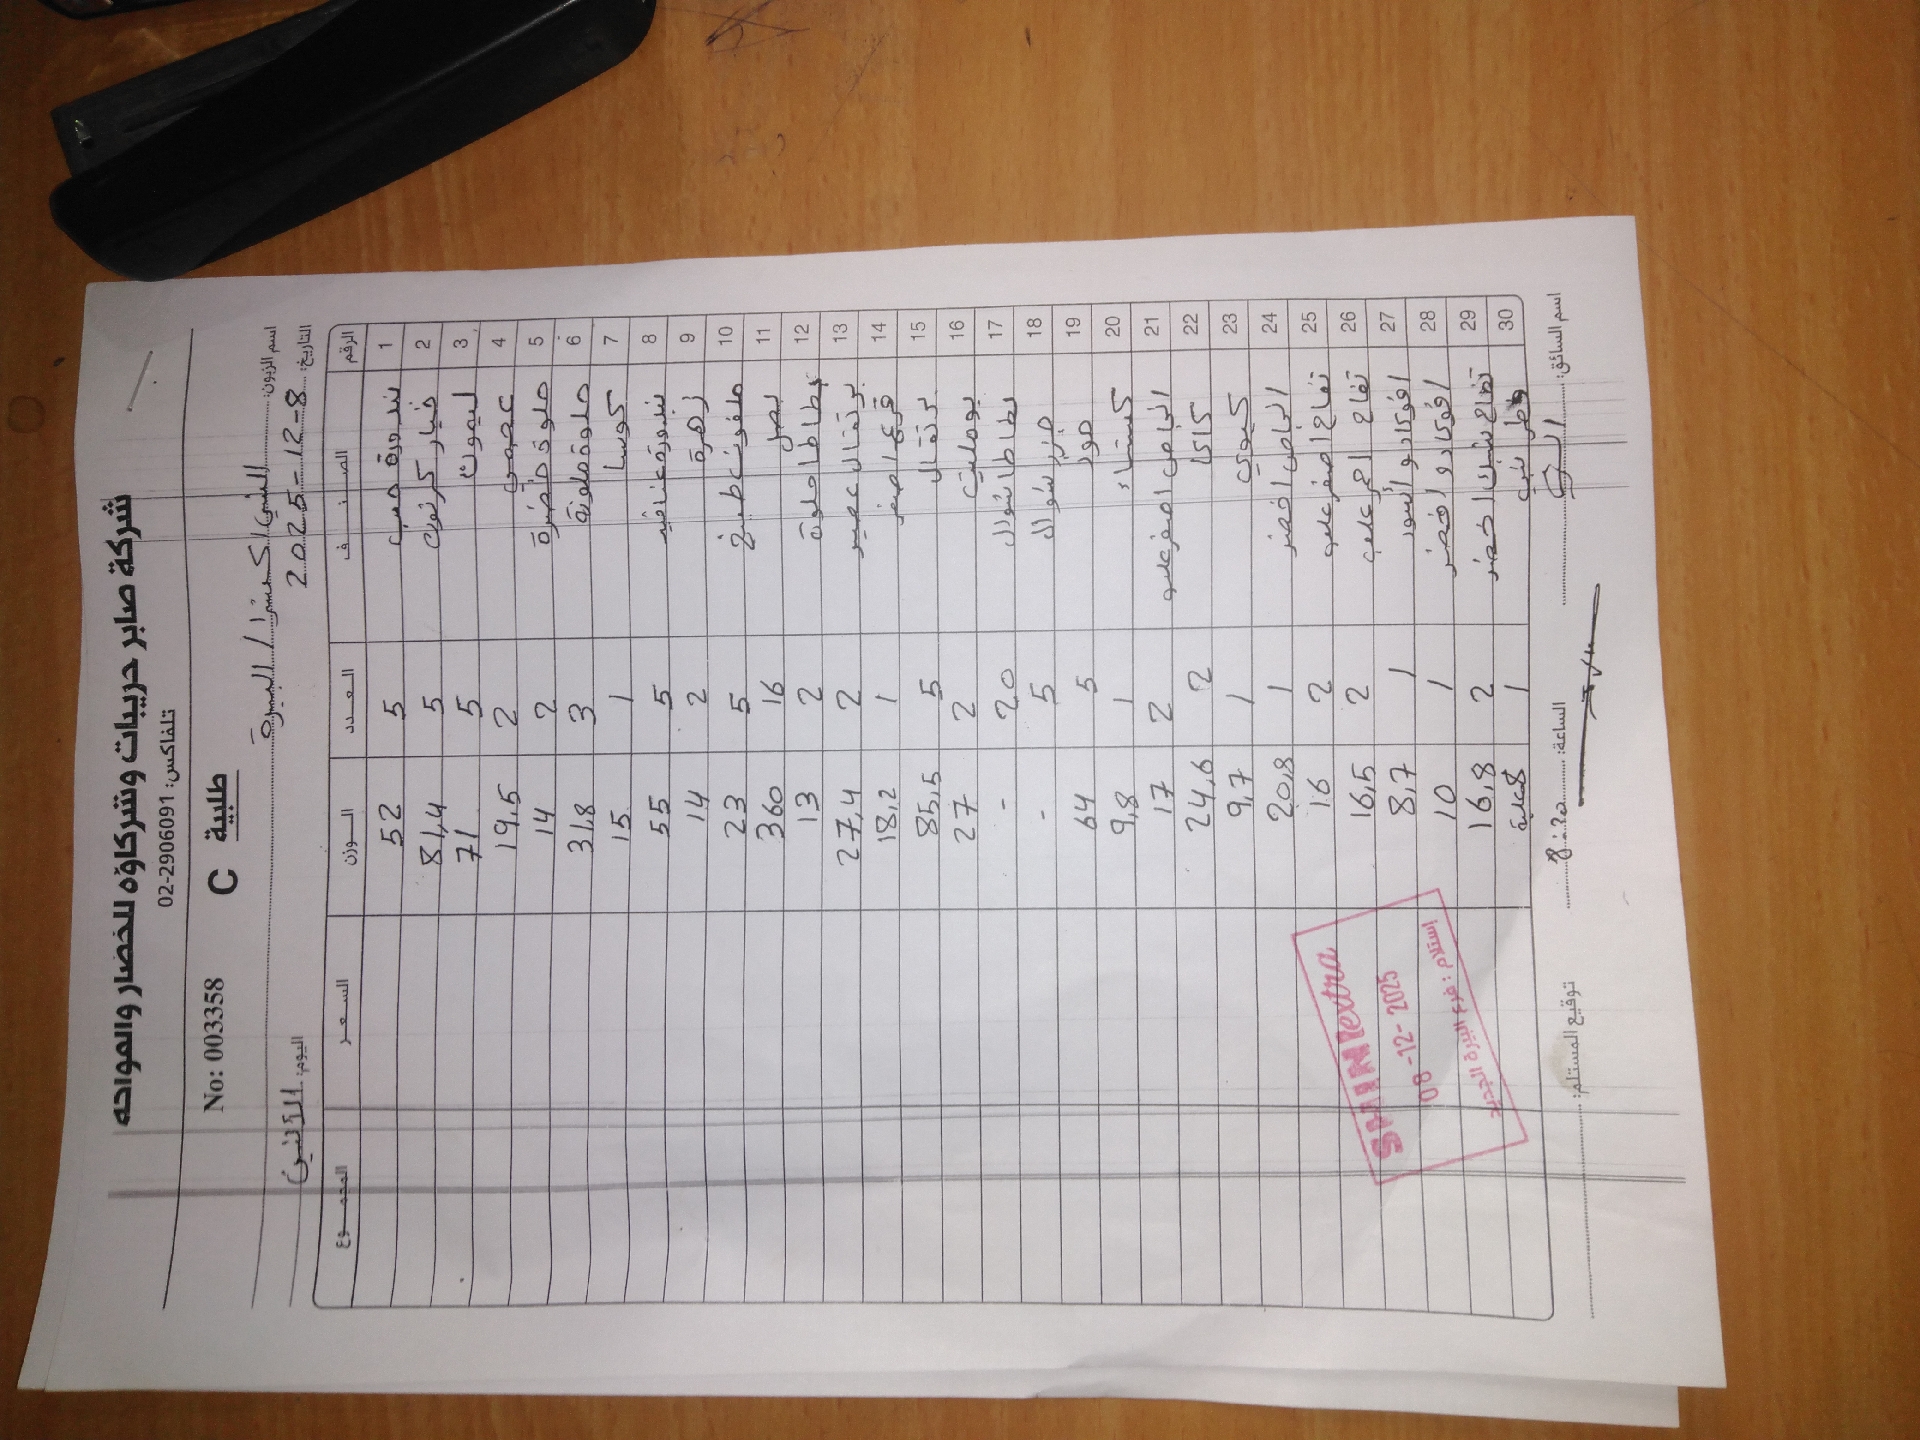 شركة صابر حريبات وشركاؤه للخضار والفواكه
تلفاكس: 02-2906091
No: 003358 C طلبية
اسم الزبون: الشني اكسترا / البيرة
التاريخ: 2025-12-8 اليوم: الاثنين
الرقم الصنف العدد الوزن السعر المجموع
1 بندورة حب 5 52
2 خيار كرتون 5 81,4
3 ليمون 5 71
4 2 19,5
5 حلوة خضرة 2 14
6 حلوة ملونة 3 31,8
7 كوسا 1 15
8 بندورة عناقيد 5 55
9 زهرة 2 14
10 ملفوف طبيخ 5 23
11 بصل 16 360
12 بطاطا حلوة 2 13
13 برتقال عصير 2 27,4
14 قرع اصفر 1 18,2
15 برتقال 5 85,5
16 بوملي 2 27
17 بطاطا شوال 20 -
18 جزر شوال 5 -
19 موز 5 64
20 كستناء 1 9,8
21 اجاص اصفر علب 2 17
22 كاكا 2 24,6
23 كيوي 1 9,7
24 اجاص اخضر 1 20,8
25 تفاح اصفر علب 2 16
26 تفاح احمر علب 2 16,5
27 افوكادو اسود 1 8,7
28 افوكادو اخضر 1 10
29 تفاح اخضر 2 16,8
30 1 8 علبة
اسم السائق: الساعة: توقيع المستلم:
SHINIextra
08-12-2025
استلام: فرع البيرة الجديد